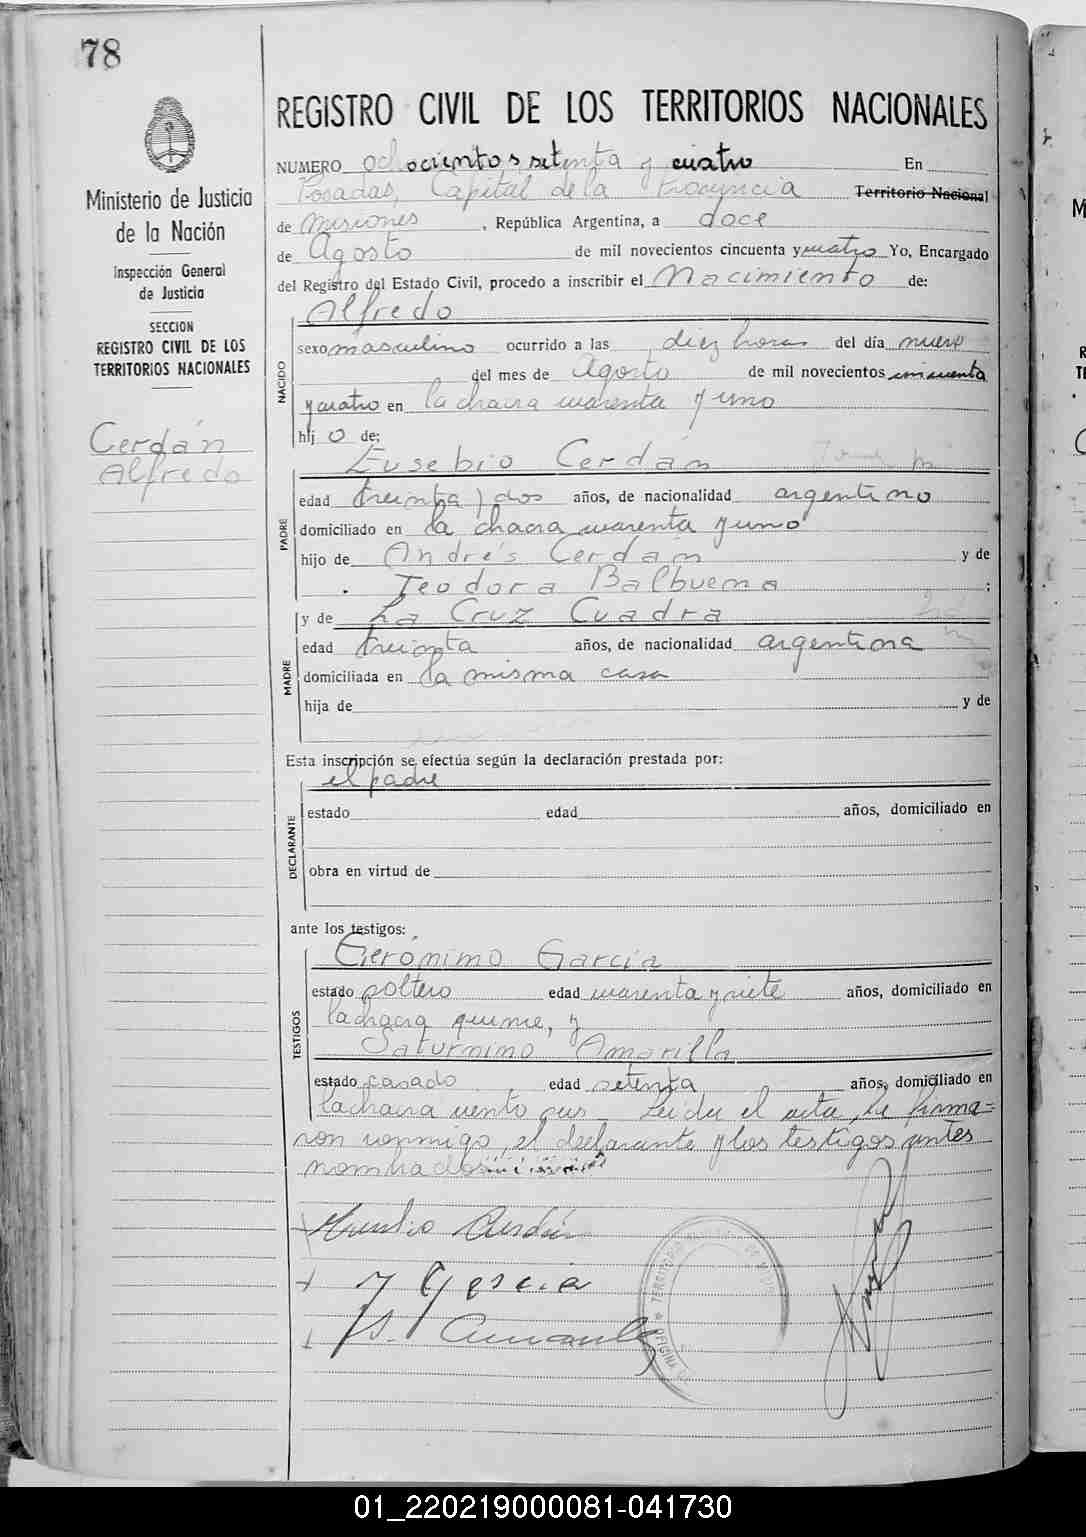 78
Ministerio de Justicia
de la Nación
Inspección General
de Justicia
SECCION
REGISTRO CIVIL DE LOS
TERRITORIOS NACIONALES
Cerdán
Alfredo
REGISTRO CIVIL DE LOS TERRITORIOS NACIONALES
NUMERO ochocientos setenta y cuatro En
Posadas, Capital de la Provincia Territorio Nacional
de Misiones, República Argentina, a doce
de Agosto de mil novecientos cincuenta y cuatro Yo, Encargado
del Registro del Estado Civil, procedo a inscribir el Nacimiento de:
NACIDO
Alfredo
sexo masculino ocurrido a las diez horas del día nueve
del mes de Agosto de mil novecientos cincuenta
y cuatro en la chacra cuarenta y uno
hij o de:
PADRE
Eusebio Cerdán
edad treinta y dos años, de nacionalidad argentino
domiciliado en la chacra cuarenta y uno
hijo de Andrés Cerdán y de
Teodora Balbuena ;
MADRE
y de La Cruz Cuadra
edad treinta años, de nacionalidad argentina
domiciliada en la misma casa
hija de y de
Esta inscripción se efectúa según la declaración prestada por:
el padre
DECLARANTE
estado edad años, domiciliado en
obra en virtud de
ante los testigos:
TESTIGOS
Gerónimo García
estado soltero edad cuarenta y siete años, domiciliado en
la chacra quince, y
Saturnino Amarilla
estado casado edad setenta años, domiciliado en
la chacra ciento seis Leída el acta, la firma=
ron conmigo, el declarante y los testigos antes
nombrados
Eusebio Cerdán
García
S. Amarilla
01_220219000081-041730